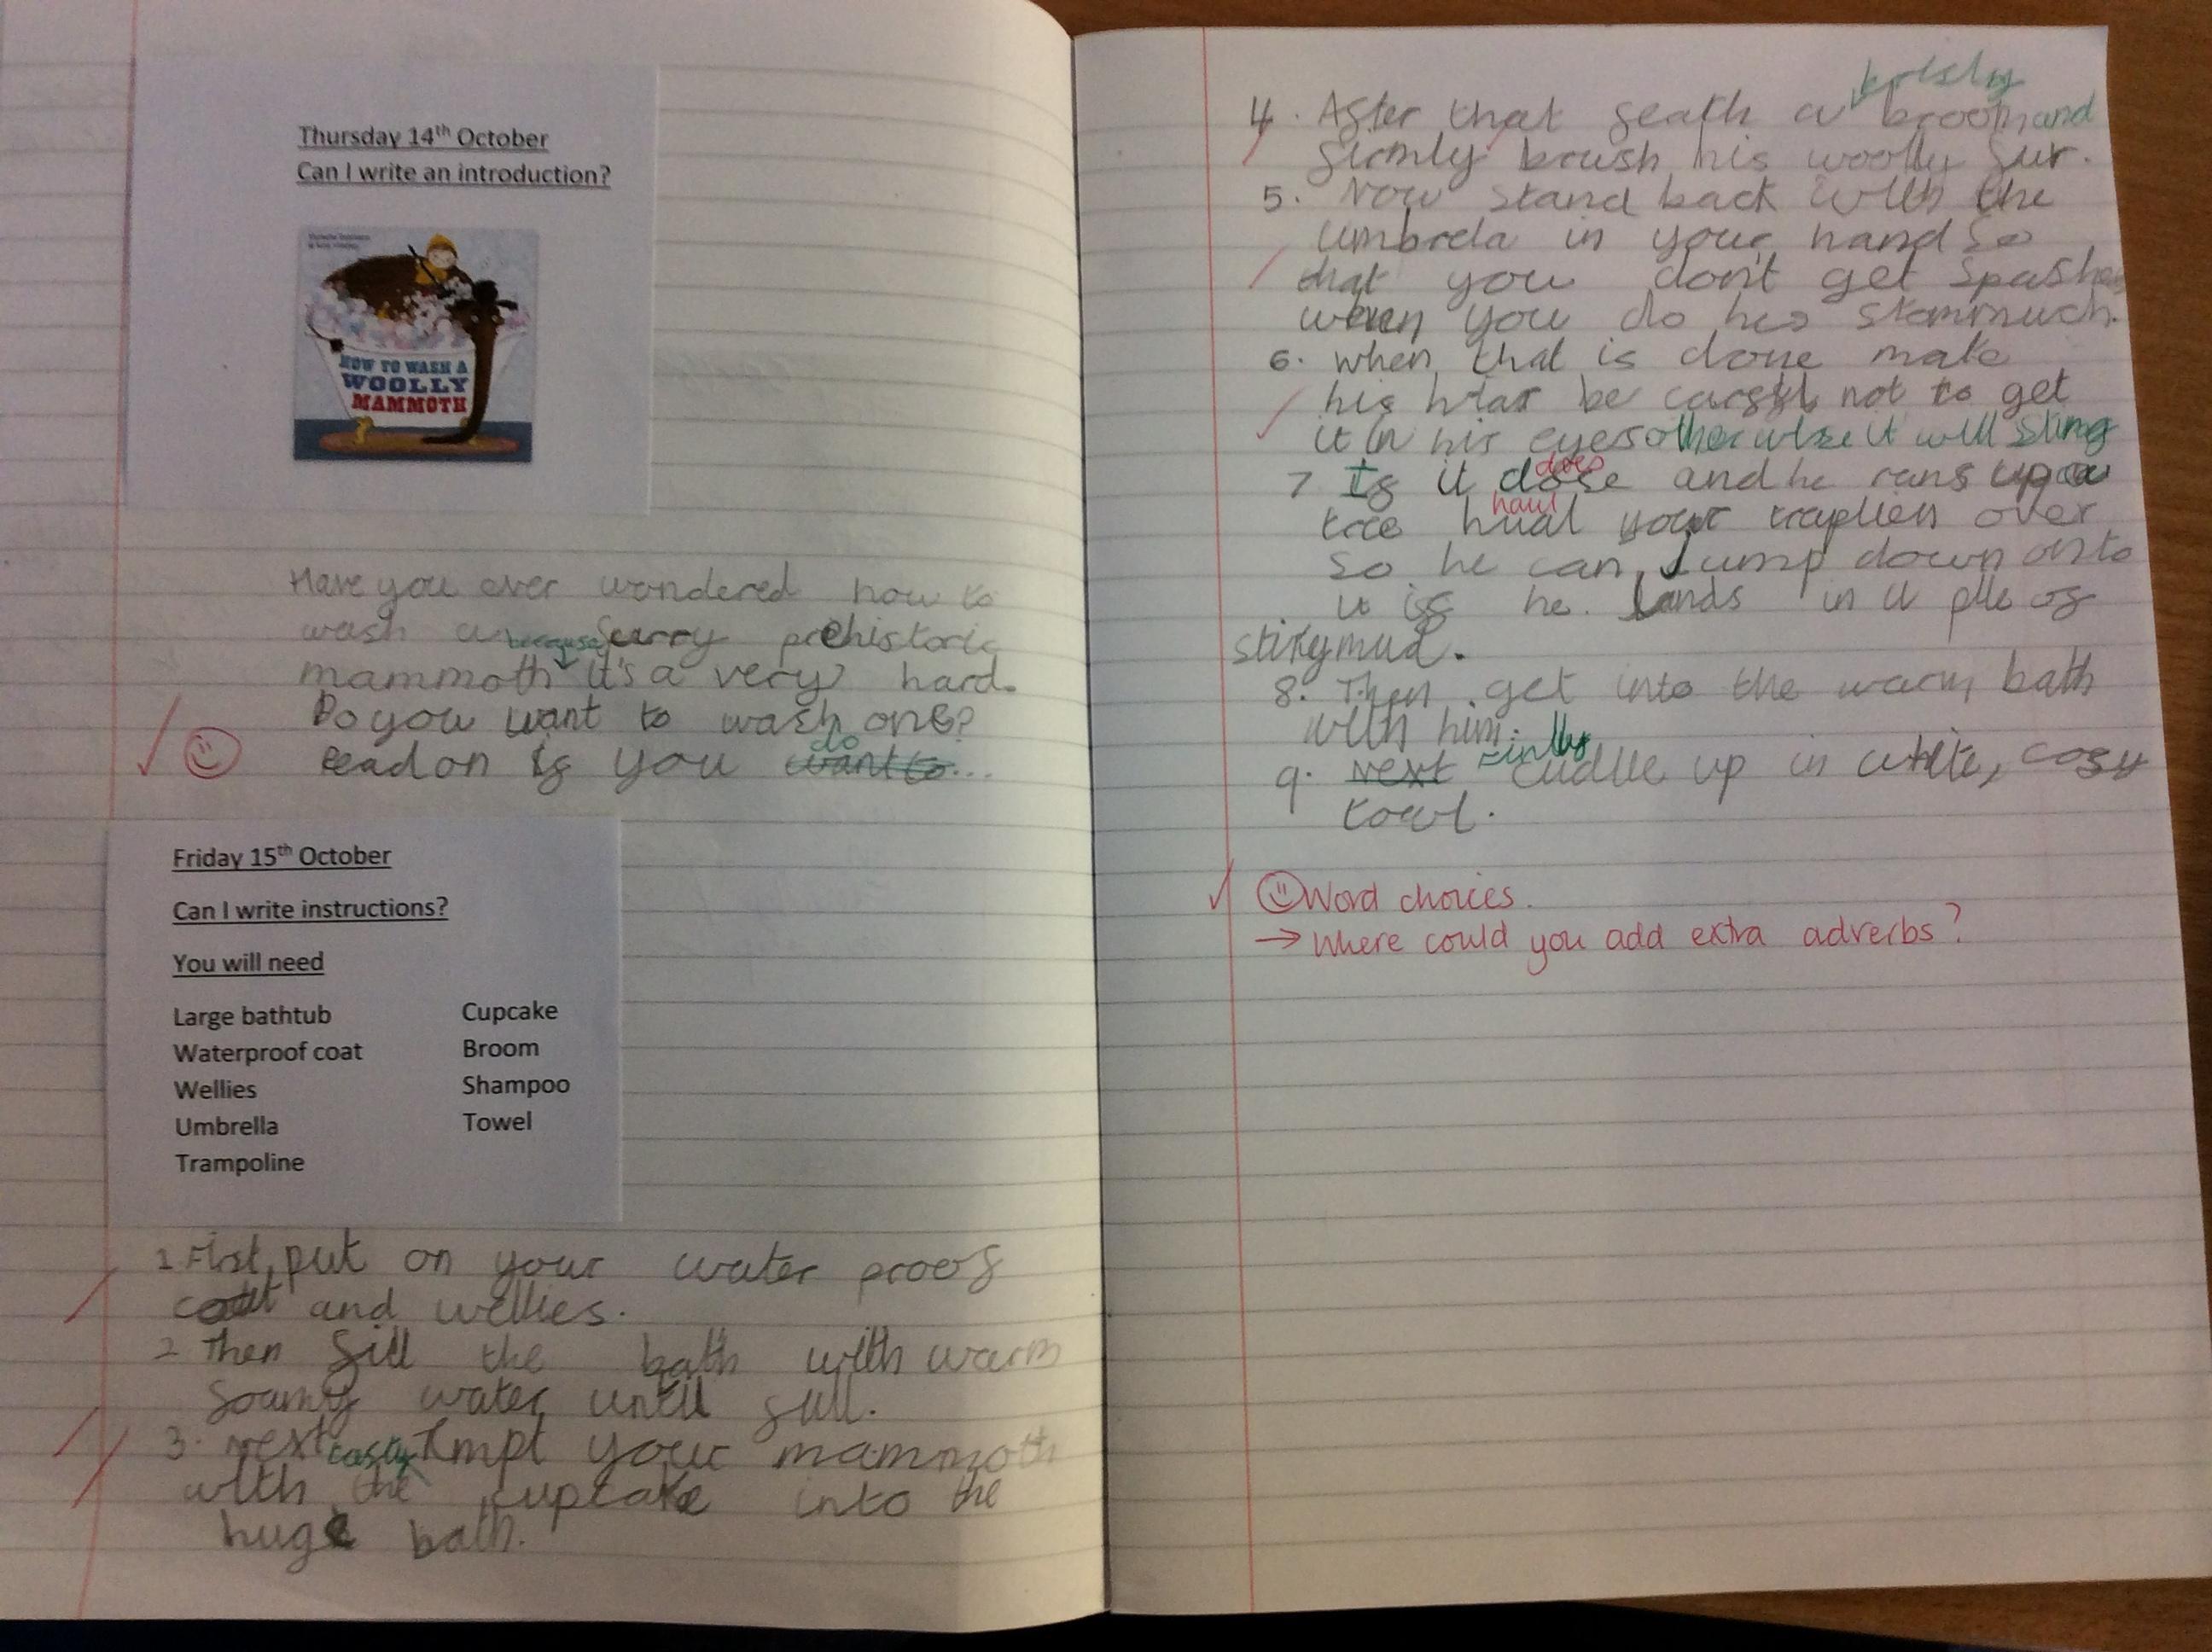 Thursday 14th October
Can I write an introduction?
HOW TO WASH A
WOOLLY
MAMMOTH
Have you ever wondered how to
wash a furry prehistoric
mammoth because it's a very hard.
Do you want to wash one?
Read on if you do want to...
Friday 15th October
Can I write instructions?
You will need
Large bathtub
Waterproof coat
Wellies
Umbrella
Trampoline
Cupcake
Broom
Shampoo
Towel
1. First, put on your water proof
coat and wellies.
2 Then fill the bath with warm
foamy water until full.
3. Next tempt your mammoth
with the cupcake into the
huge bath.
4. After that a broom and
firmly brush his woolly fur.
5. Now stand back with the
umbrela in your hand so
that you don't get spashed
when you do his stommuch.
6. when that is done make
his be not to get
it in his eyes otherwise it will sting
7 If it does and he runs up a
tree haul hual your over
so he can jump down onto
it if he lands in a pile of
stikymud.
8. Then get into the warm bath
with him.
9. Next cudlle up in white, cosy
towl.
Word choices.
→ Where could you add extra adverbs?